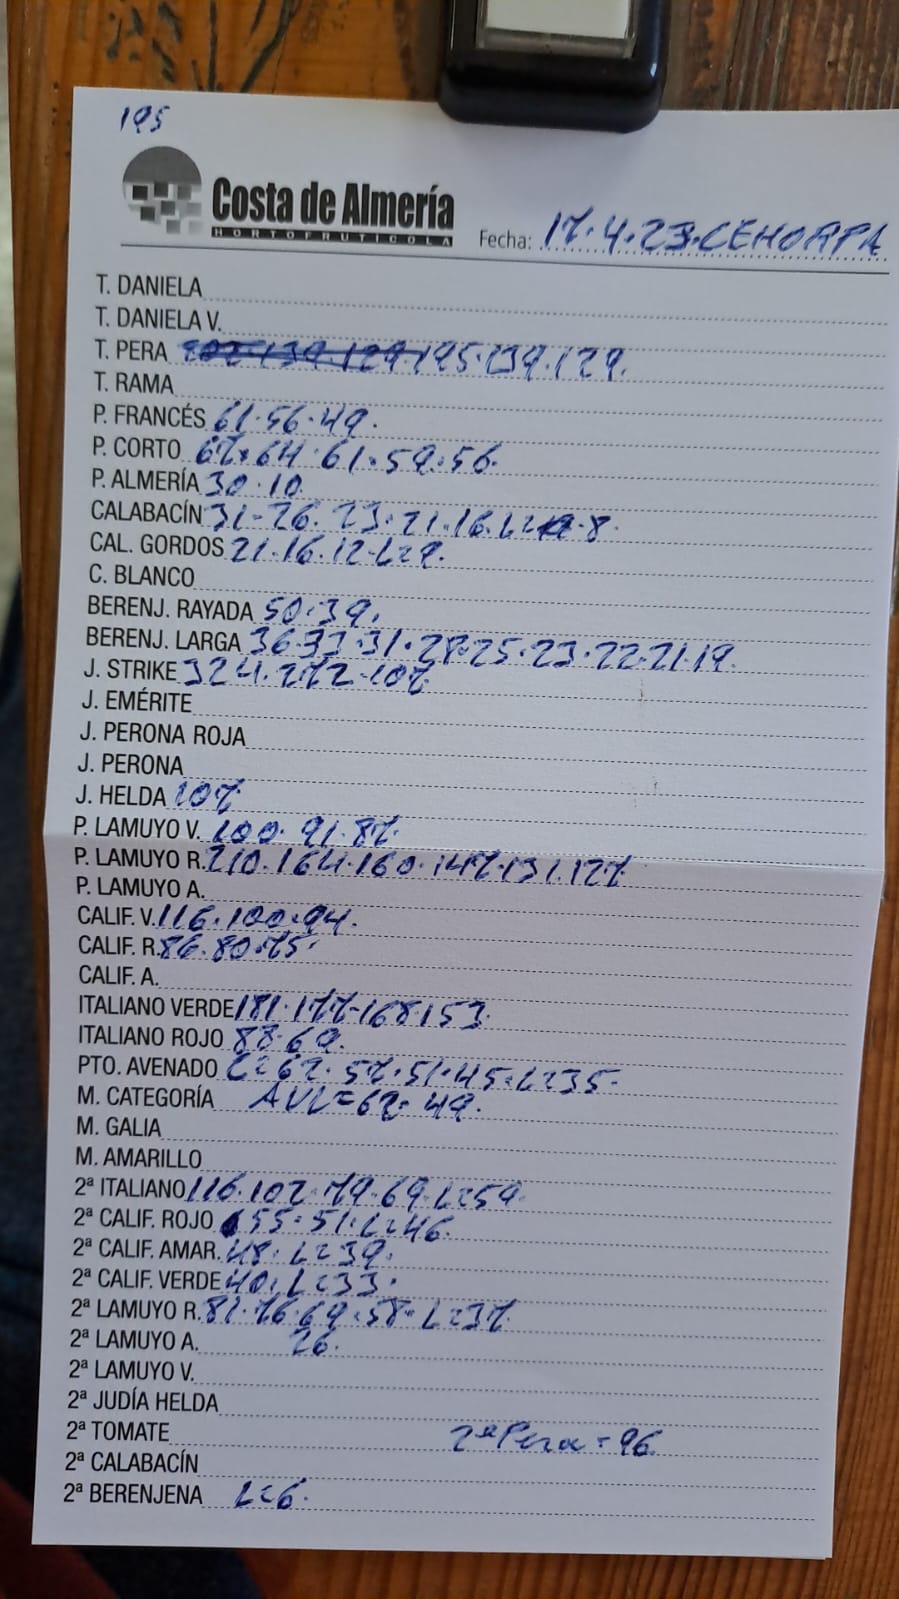 195
Costa de Almería
HORTOFRUTÍCOLA
Fecha: 17.4.23.CEHORPA
T. DANIELA
T. DANIELA V.
T. PERA 195.139.129.
T. RAMA
P. FRANCÉS 61.56.49.
P. CORTO 67.64.61.59.56.
P. ALMERÍA 30.10
CALABACÍN 31-26.23.21.16.L=8.
CAL. GORDOS 21.16.12-L=9.
C. BLANCO
BERENJ. RAYADA 50.39.
BERENJ. LARGA 36.33.31.28.25.23.22.21.19.
J. STRIKE 324.272-107
J. EMÉRITE
J. PERONA ROJA
J. PERONA
J. HELDA 107
P. LAMUYO V. 100.91.87.
P. LAMUYO R. 210.164.160.147.131.127
P. LAMUYO A.
CALIF. V. 116.100.94.
CALIF. R. 86.80.75.
CALIF. A.
ITALIANO VERDE 181.177-168.153.
ITALIANO ROJO 88.69.
PTO. AVENADO C=67.57.51.45.L=35.
M. CATEGORÍA AVL=67-49.
M. GALIA
M. AMARILLO
2ª ITALIANO 116.102.79.69.L=59.
2ª CALIF. ROJO 55-51.L=46.
2ª CALIF. AMAR. 48.L=39.
2ª CALIF. VERDE 40.L=33.
2ª LAMUYO R. 81.76.69.58-L=37
2ª LAMUYO A. 26.
2ª LAMUYO V.
2ª JUDÍA HELDA
2ª TOMATE 2ª Pera=96
2ª CALABACÍN
2ª BERENJENA L=6.